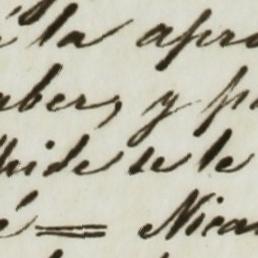 á la apro
aber, y p
hide se le
é = Nica